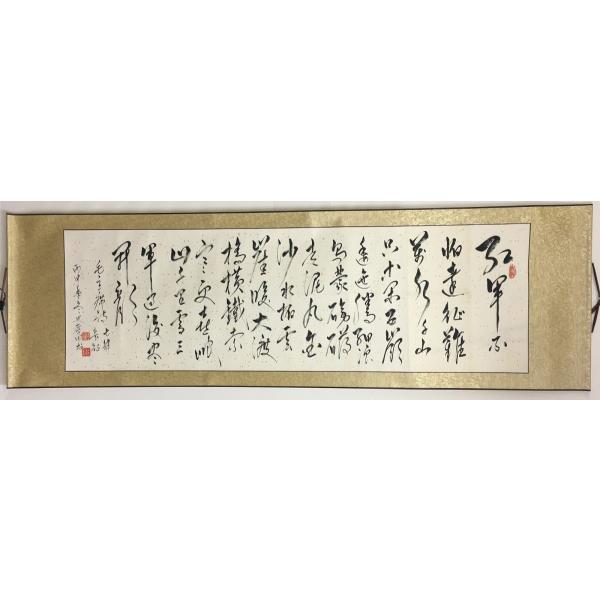 红军不
怕遠征難
萬水千山
只等闲五嶺
逶迤腾细浪
烏蒙磅礴
走泥丸金
沙水拍雲
崖暖大渡
橋横鐵索
寒更喜岷
山千里雪三
軍过後尽
开颜
毛主席诗七律
长征
丙申